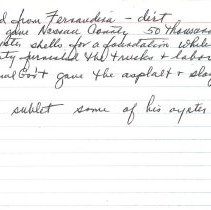 d from Fernandina - dist
gave Nassau County 50 thousand
shells for a foundation while
ty furnished the trucks & labor
Gov't gave the asphalt & slag
sublet some of his oyster